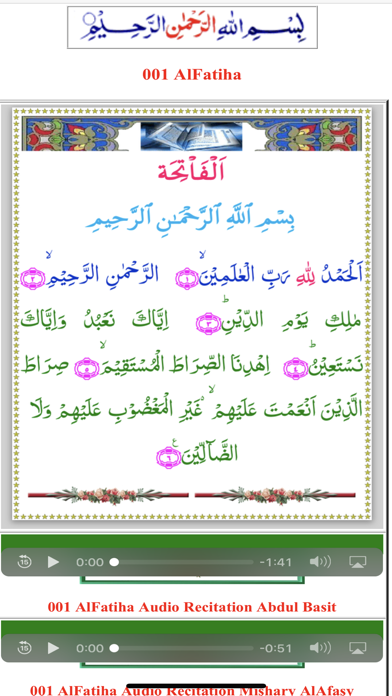 بِسْمِ اللهِ الرَّحْمٰنِ الرَّحِيْمِ
001 AlFatiha
اَلْفَاْتِحَة
بِسْمِ ٱللَّهِ ٱلرَّحْمَـٰنِ ٱلرَّحِيمِ
اَلْحَمْدُ لِلّٰهِ رَبِّ الْعٰلَمِيْنَۙ ﴿١﴾ الرَّحْمٰنِ الرَّحِيْمِۙ ﴿٢﴾
مٰلِكِ يَوْمِ الدِّيْنِؕ ﴿٣﴾ اِيَّاكَ نَعْبُدُ وَاِيَّاكَ
نَسْتَعِيْنُؕ ﴿٤﴾ اِهْدِنَا الصِّرَاطَ الْمُسْتَقِيْمَۙ ﴿٥﴾ صِرَاطَ
الَّذِيْنَ اَنْعَمْتَ عَلَيْهِمْ ۙ غَيْرِ الْمَغْضُوْبِ عَلَيْهِمْ وَلَا
الضَّآلِّيْنَ ﴿٦﴾
15 0:00 -1:41
001 AlFatiha Audio Recitation Abdul Basit
15 0:00 -0:51
001 AlFatiha Audio Recitation Mishary AlAfasy